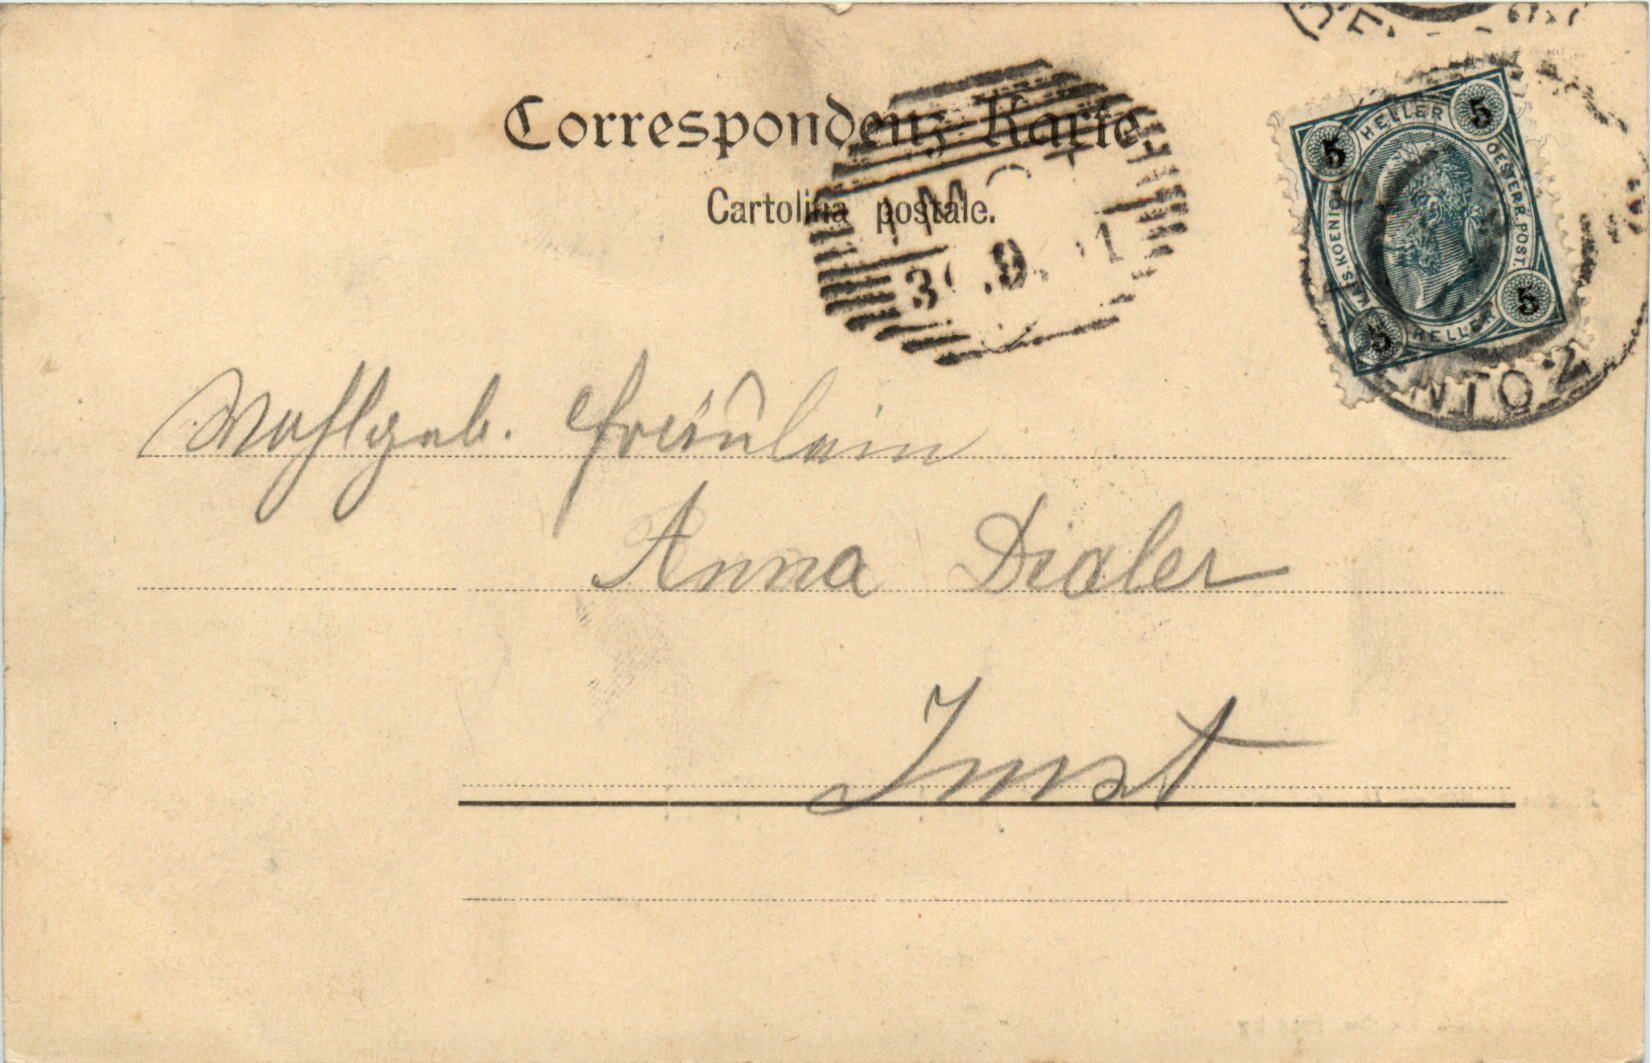 Correspondenz-Karte.
Cartolina postale.
IMST
30.9.01
5 HELLER 5
KAIS. KOENIGL. OESTERR. POST.
5 HELLER 5
Wohlgeb. Fräulein
Anna Dialer
Imst